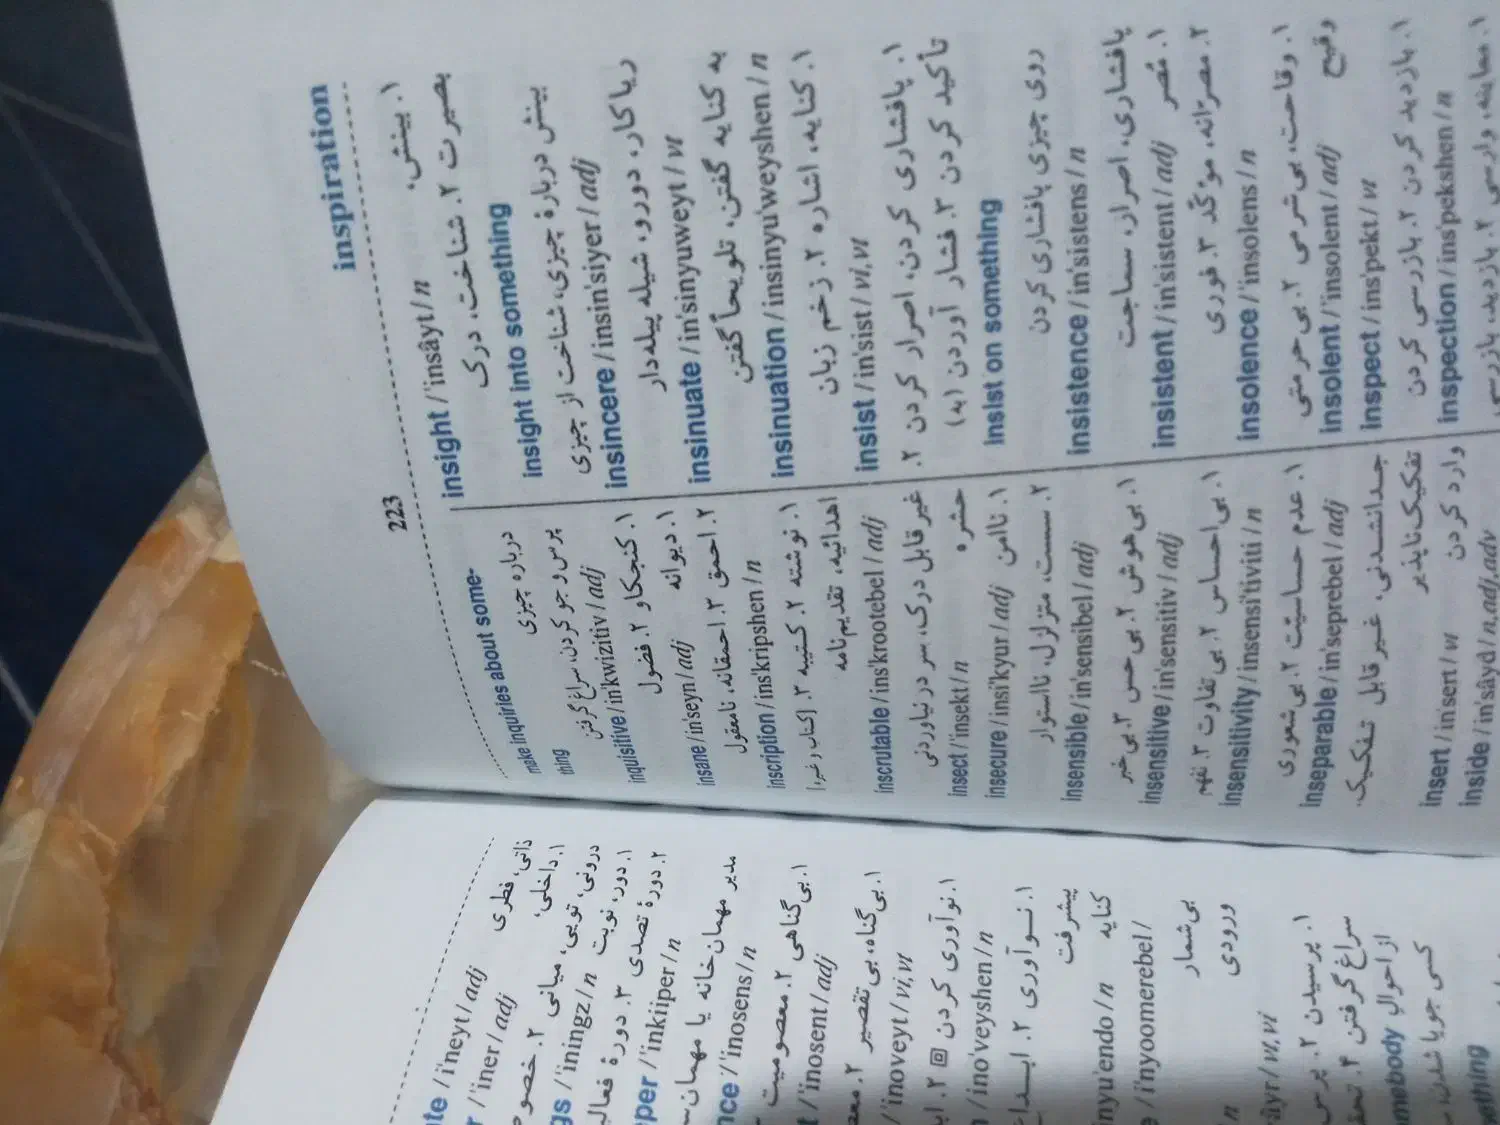 223
inspiration
make inquiries about some-
thing درباره چیزی
پرس و جو کردن، سراغ گرفتن
inquisitive / in'kwizitiv / adj
۱. کنجکاو ۲. فضول
insane / in'seyn / adj ۱. دیوانه
۲. احمق ۳. احمقانه، نامعقول
inscription / ins'kripshen / n
۱. نوشته ۲. کتیبه ۳. [کتاب و غیره]
اهدائیه، تقدیم‌نامه
inscrutable / ins'krootebel / adj
غیر قابل درک، سر در نیاوردنی
insect / 'insekt / n حشره
insecure / insi'kyur / adj ۱. ناامن
۲. سست، متزلزل، نااستوار
insensible / in'sensibel / adj
۱. بی‌هوش ۲. بی‌حس ۳. بی‌خبر
insensitive / in'sensitiv / adj
۱. بی‌احساس ۲. بی‌تفاوت ۳. نفهم
insensitivity / insensi'tiviti / n
۱. عدم حساسیّت ۲. بی‌شعوری
inseparable / in'seprebel / adj
جدانشدنی، غیر قابل تفکیک،
تفکیک‌ناپذیر
insert / in'sert / vt وارد کردن
inside / in'sâyd / n,adj,adv
insight / 'insâyt / n ۱. بینش،
بصیرت ۲. شناخت، درک
insight into something
بینش دربارهٔ چیزی، شناخت از چیزی
insincere / insin'siyer / adj
ریاکار، دورو، شیله پیله‌دار
insinuate / in'sinyuweyt / vt
به کنایه گفتن، تلویحاً گفتن
insinuation / insinyu'weyshen / n
۱. کنایه، اشاره ۲. زخم زبان
insist / in'sist / vi,vt
۱. پافشاری کردن، اصرار کردن ۲.
تأکید کردن ۳. فشار آوردن (به)
insist on something
روی چیزی پافشاری کردن
insistence / in'sistens / n
پافشاری، اصرار، سماجت
insistent / in'sistent / adj ۱. مُصر
۲. مصرّانه، مؤکّد ۳. فوری
insolence / 'insolens / n
۱. وقاحت، بی‌شرمی ۲. بی‌حرمتی
insolent / 'insolent / adj وقیح
inspect / ins'pekt / vt
۱. بازدید کردن ۲. بازرسی کردن
inspection / ins'pekshen / n
۱. معاینه، وارسی ۲. بازدید، بازرسی
te / i'neyt / adj ذاتی، فطری
r / 'iner / adj ۱. داخلی،
درونی، تویی، میانی ۲. خصو
gs / 'iningz / n ۱. دور، نوبت
۲. دورهٔ تصدی ۳. دورهٔ فعالی
per / 'inkiiper / n
مدیر مهمان‌خانه یا مهمان‌س
nce / 'inosens / n
۱. بی‌گناهی ۲. معصومیت
t / 'inosent / adj
۱. بی‌گناه، بی‌تقصیر ۲. معص
/ 'inoveyt / vi,vt
۱. نوآوری کردن ▣ ۲. اب
/ ino'veyshen / n
۱. نـوآوری ۲. ابـداع
پیشرفت
inyu'endo / n کنایه
e / i'nyoomerebel /
بی‌شمار
n ورودی
âyr / vt,vi
۱. پرسیدن ۲. پرس
سراغ گرفتن ۳. تحق
mebody از احوال
کسی جویا شدن،
mething